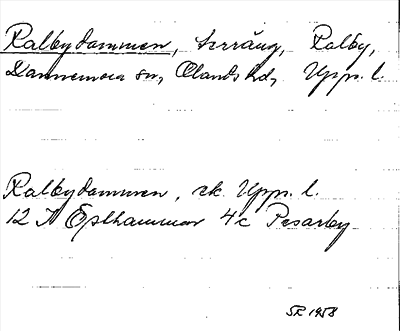 Ralbydammen, terräng, Ralby,
Dannemora sn, Olands hd, Upps. l.
Ralbydammen, ek. Upps. l.
12 I Östhammar 4c Pesarby
SR 1958